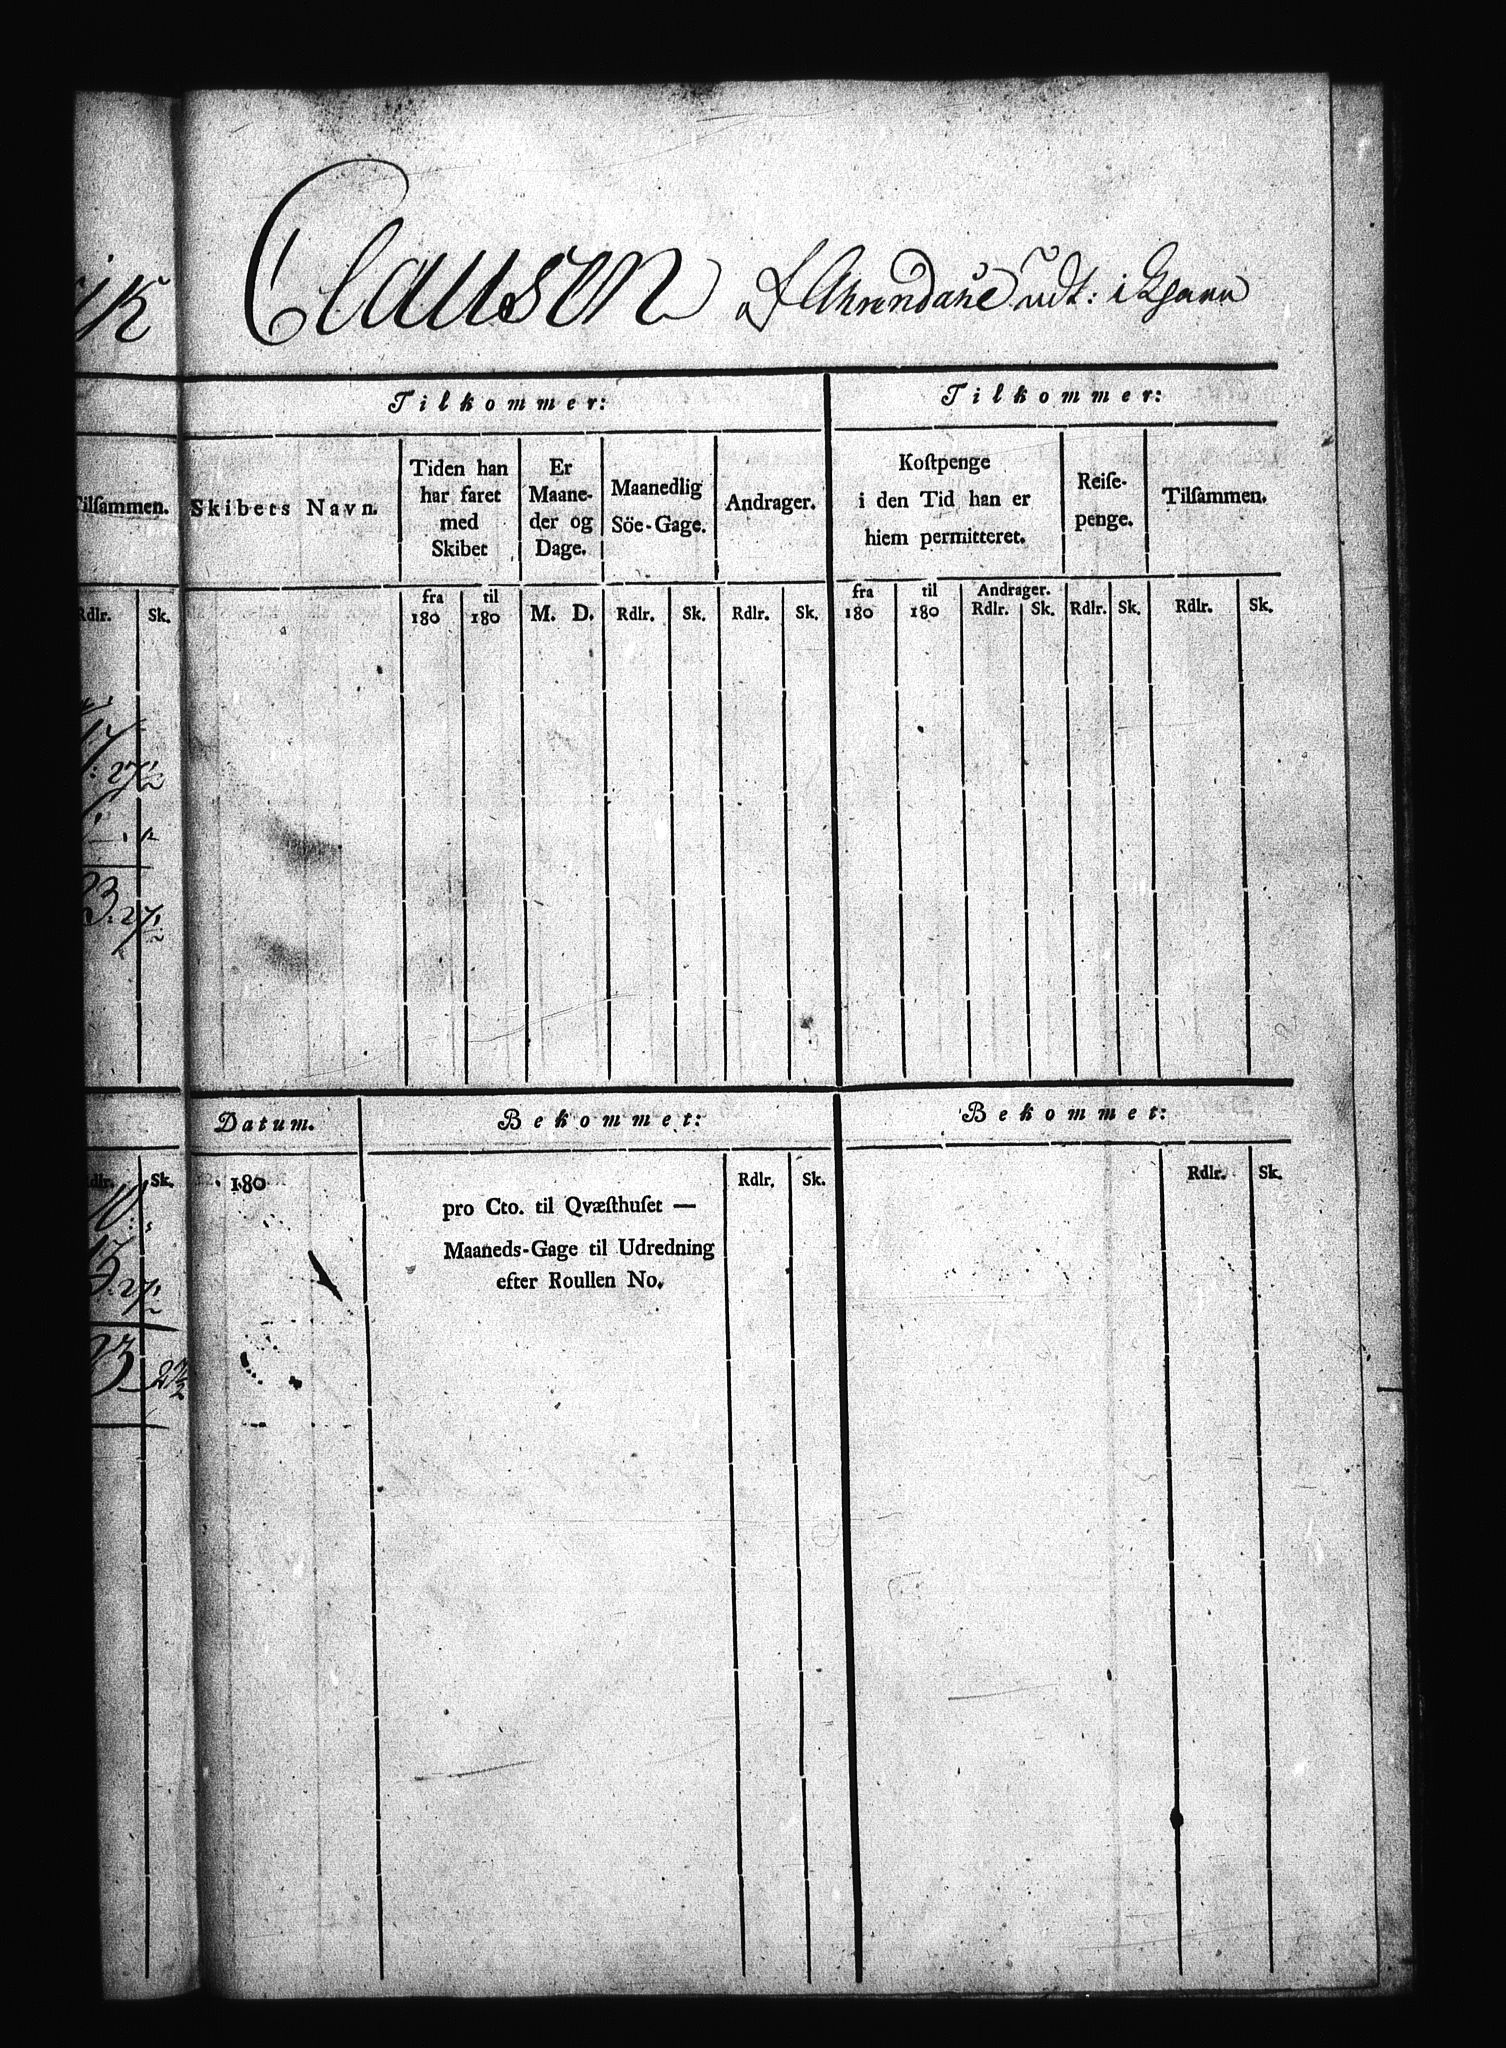 Clausen af Ahrendahl udt: i
Tilkommer: Tilkommer:
Tilsammen. Skibets Navn. Tiden han har faret med Skibet Er Maaneder og Dage. Maanedlig Söe-Gage. Andrager. Kostpenge i den Tid han er hiem permitteret. Reise-penge. Tilsammen.
Rdlr. Sk. fra 180 til 180 M. D. Rdlr. Sk. Rdlr. Sk. fra 180 til 180 Andrager. Rdlr. Sk. Rdlr. Sk. Rdlr. Sk.
: 27½
3: 27½
Datum. Bekommet: Bekommet:
Rdlr. Sk. 180 Rdlr. Sk. Rdlr. Sk.
pro Cto. til Qvæsthuset —
Maaneds-Gage til Udredning
efter Roullen No.
3: 27½
93 27½